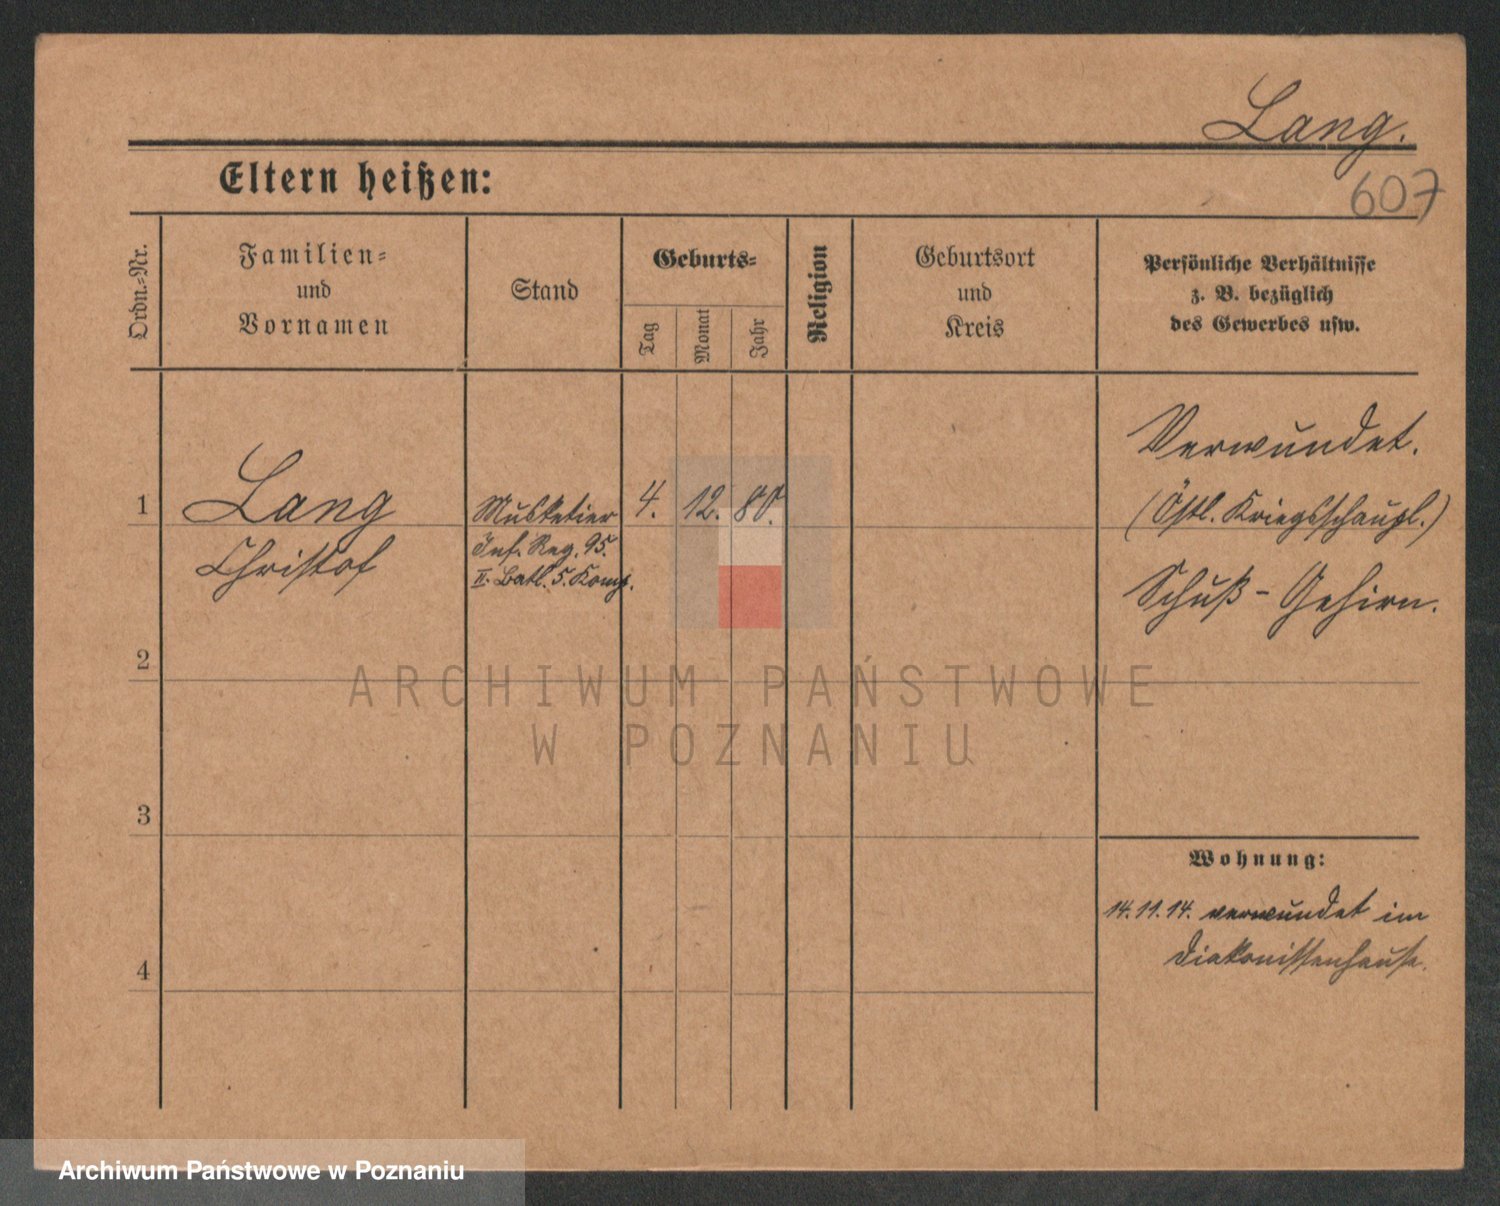 Lang.
607
Eltern heißen:
Ordn.-Nr.
Familien-
und
Vornamen
Stand
Geburts-
Tag
Monat
Jahr
Religion
Geburtsort
und
Kreis
Persönliche Verhältnisse
z. B. bezüglich
des Gewerbes usw.
1
Lang
Christof
Musketier
Inf. Reg. 95.
II. Batl. 5. Komp.
4.
12.
80.
Verwundet.
(Östl. Kriegsschaupl.)
Schuß - Gehirn.
2
ARCHIWUM PAŃSTWOWE
W POZNANIU
3
Wohnung:
14.11.14. verwundet im
Diakonissenhause.
4
Archiwum Państwowe w Poznaniu